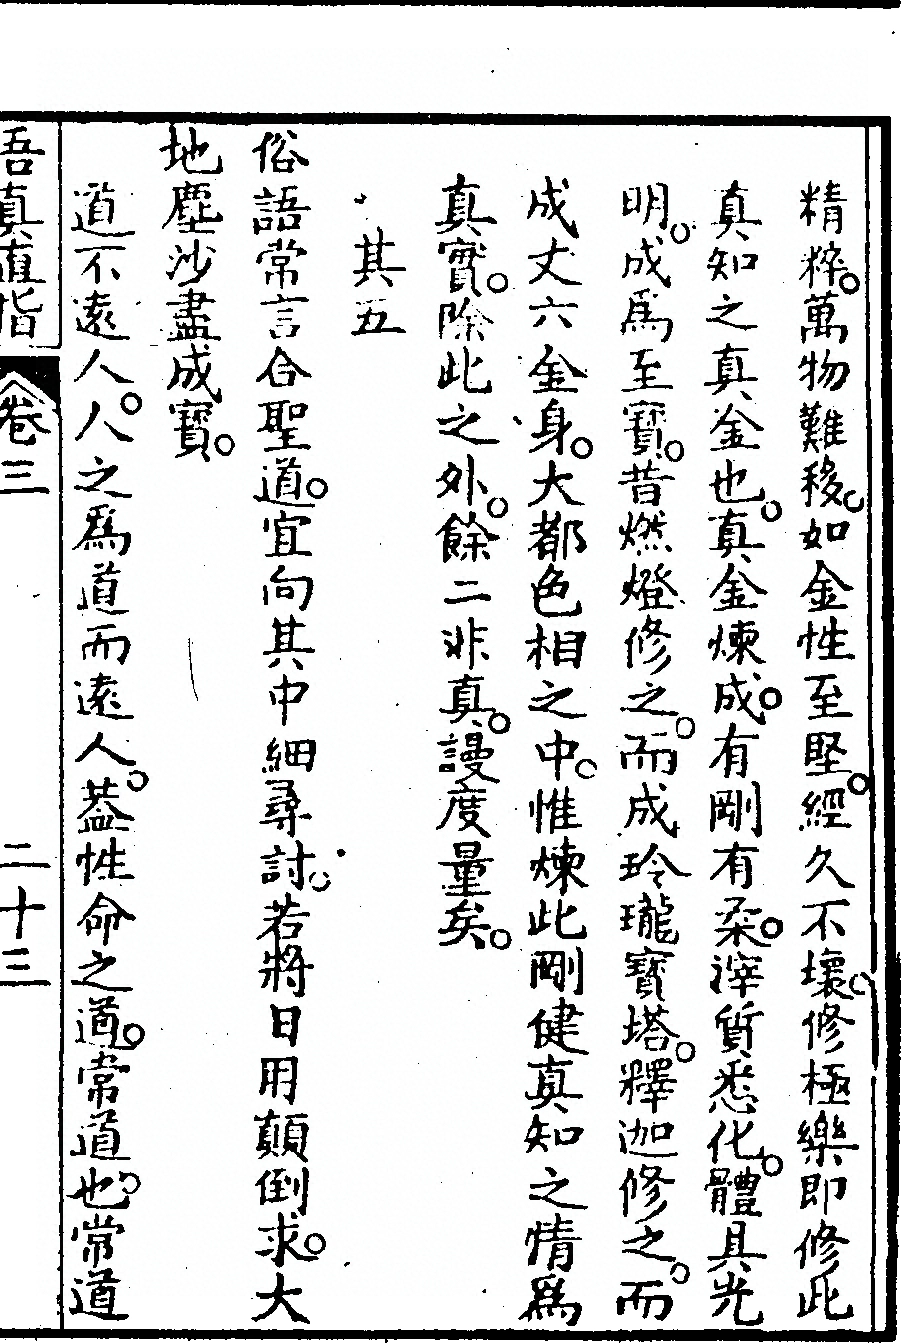 精粹。萬物難移。如金性至堅。經久不壞。修極樂即修此
真知之真金也。真金煉成。有剛有柔。滓質悉化。體具光
明。成爲至寶。昔燃燈修之。而成玲瓏寶塔。釋迦修之。而
成丈六金身。大都色相之中。惟煉此剛健真知之情爲
真實。除此之外。餘二非真。謾度量矣。
其五
俗語常言合聖道。宜向其中細尋討。若將日用顛倒求。大
地塵沙盡成寶。
道不遠人。人之爲道而遠人。蓋性命之道。常道也。常道
吾真直指 卷三 二十三